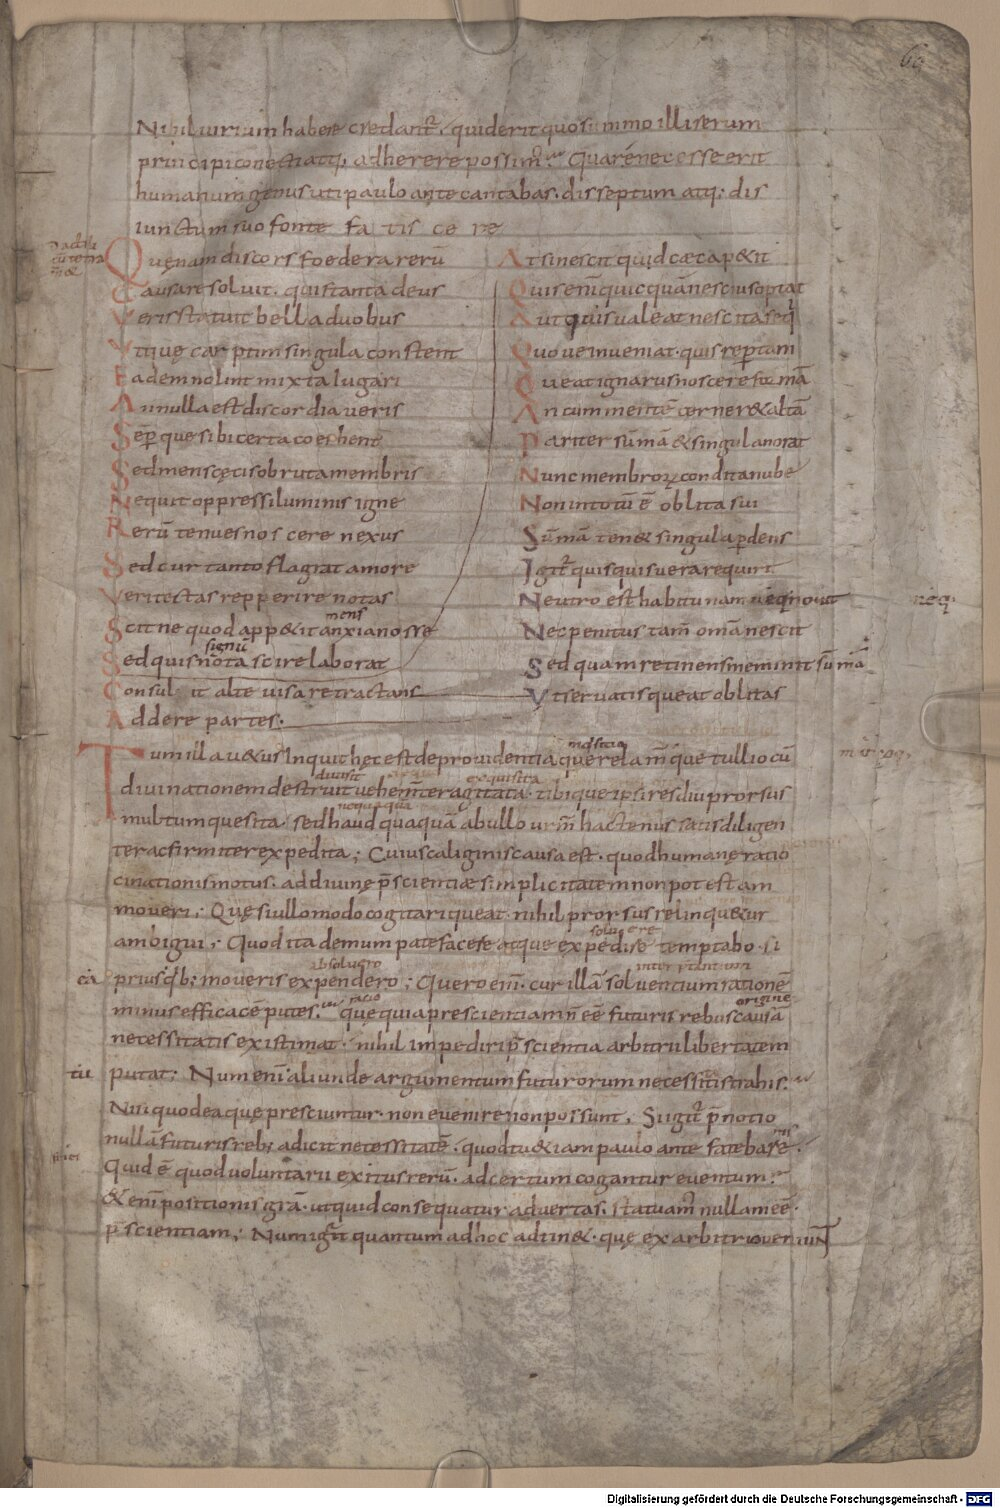 60
Nihil uirium habere credant᷑. quid erit quo summo illi rerum
principi conecti atq; adherere possim᷑. Quare necesse erit
humanum genus uti paulo ante cantabas. disseptum atq; dis
iunctum suo fonte fatiscere
Quęnam discors foedera rerū
Causa resoluit. quis tanta deus
Veris statuit bella duobus
Vt quę carptim singula constent
Eadem nolint mixta iugari
An nulla est discordia ueris
Sēp que sibi certa coherent
Sed mens cęcis obruta membris
Nequit oppressi luminis igne
Rerū tenues noscere nexus
Sed cur tanto flagrat amore
Veri tectas repperire notas
mens
Scitne quod app&it anxia nosse
signū
Sed quis nota scire laborat
At si nescit quid cæca p&it
Quis enī quicquā nescius optat
Aut quis ualeat nescita seq̄
Quoue inueniat. quis repertam
Queat ignarus noscere formā
An cum mentē cerner& altā
Pariter sūmā & singula norat
Nunc membroꝝ condita nube
Non in totū ē oblita sui
Sūmā ten& singula ꝑdens
Igit᷑ quisquis uera requirit
Neutro est habitu nam neq; nouit
neq;
Nec penitus tam̄ omā nescit
Sed quam retinens meminit sūmā
Consulit alte uisa retractans
Vt seruatis queat oblitas
Addere partes.
Tum illa u&us inquit hęc est de prouidentia querela m̄que tullio cū
diuisit exquisita
diuinationem destruit uehem̄ter agitata. tibique ipsi res diu prorsus
nequaqua
multum quesita. sed haud quaquā ab ullo urm̄ hactenus satis diligen
ter ac firmiter expedita; Cuius caliginis causa est. quod humanę ratio
cinationis motus. ad diuinę p̄scientiæ simplicitatem non potest am
moueri; Quę si ullo modo cogitari queat. nihil prorsus relinqu&ur
soluere
ambigui; Quod ita demum patefacere atque expedire temptabo. si
absoluero
prius q̄b; moueris expendero; Quero enī. cur illā soluentium rationē
ratio origine
minus efficacē putes. quę quia prescientiam n̄ eē futuris rebus causā
necessitatis existimat. nihil impediri p̄scientia arbitrii libertatem
putat; Num enī aliunde argumentum futurorum necessitis trahis.
tu
Nisi quod ea que presciuntur. non euenire non possunt; Si igit᷑ p̄notio
nullā futuris reb; adicit necessitatē. quod tu &iam paulo ante fatebare.
Quid ē quod uoluntarii exitus rerū. ad certum cogantur euentum?
& enī positionis grā. ut quid consequatur aduertas. statuam᷑ nullam eē.
p̄scientiam; Num igit᷑ quantum ad hoc adtin&. quę ex arbitrio ueniunt
Digitalisierung gefördert durch die Deutsche Forschungsgemeinschaft - DFG